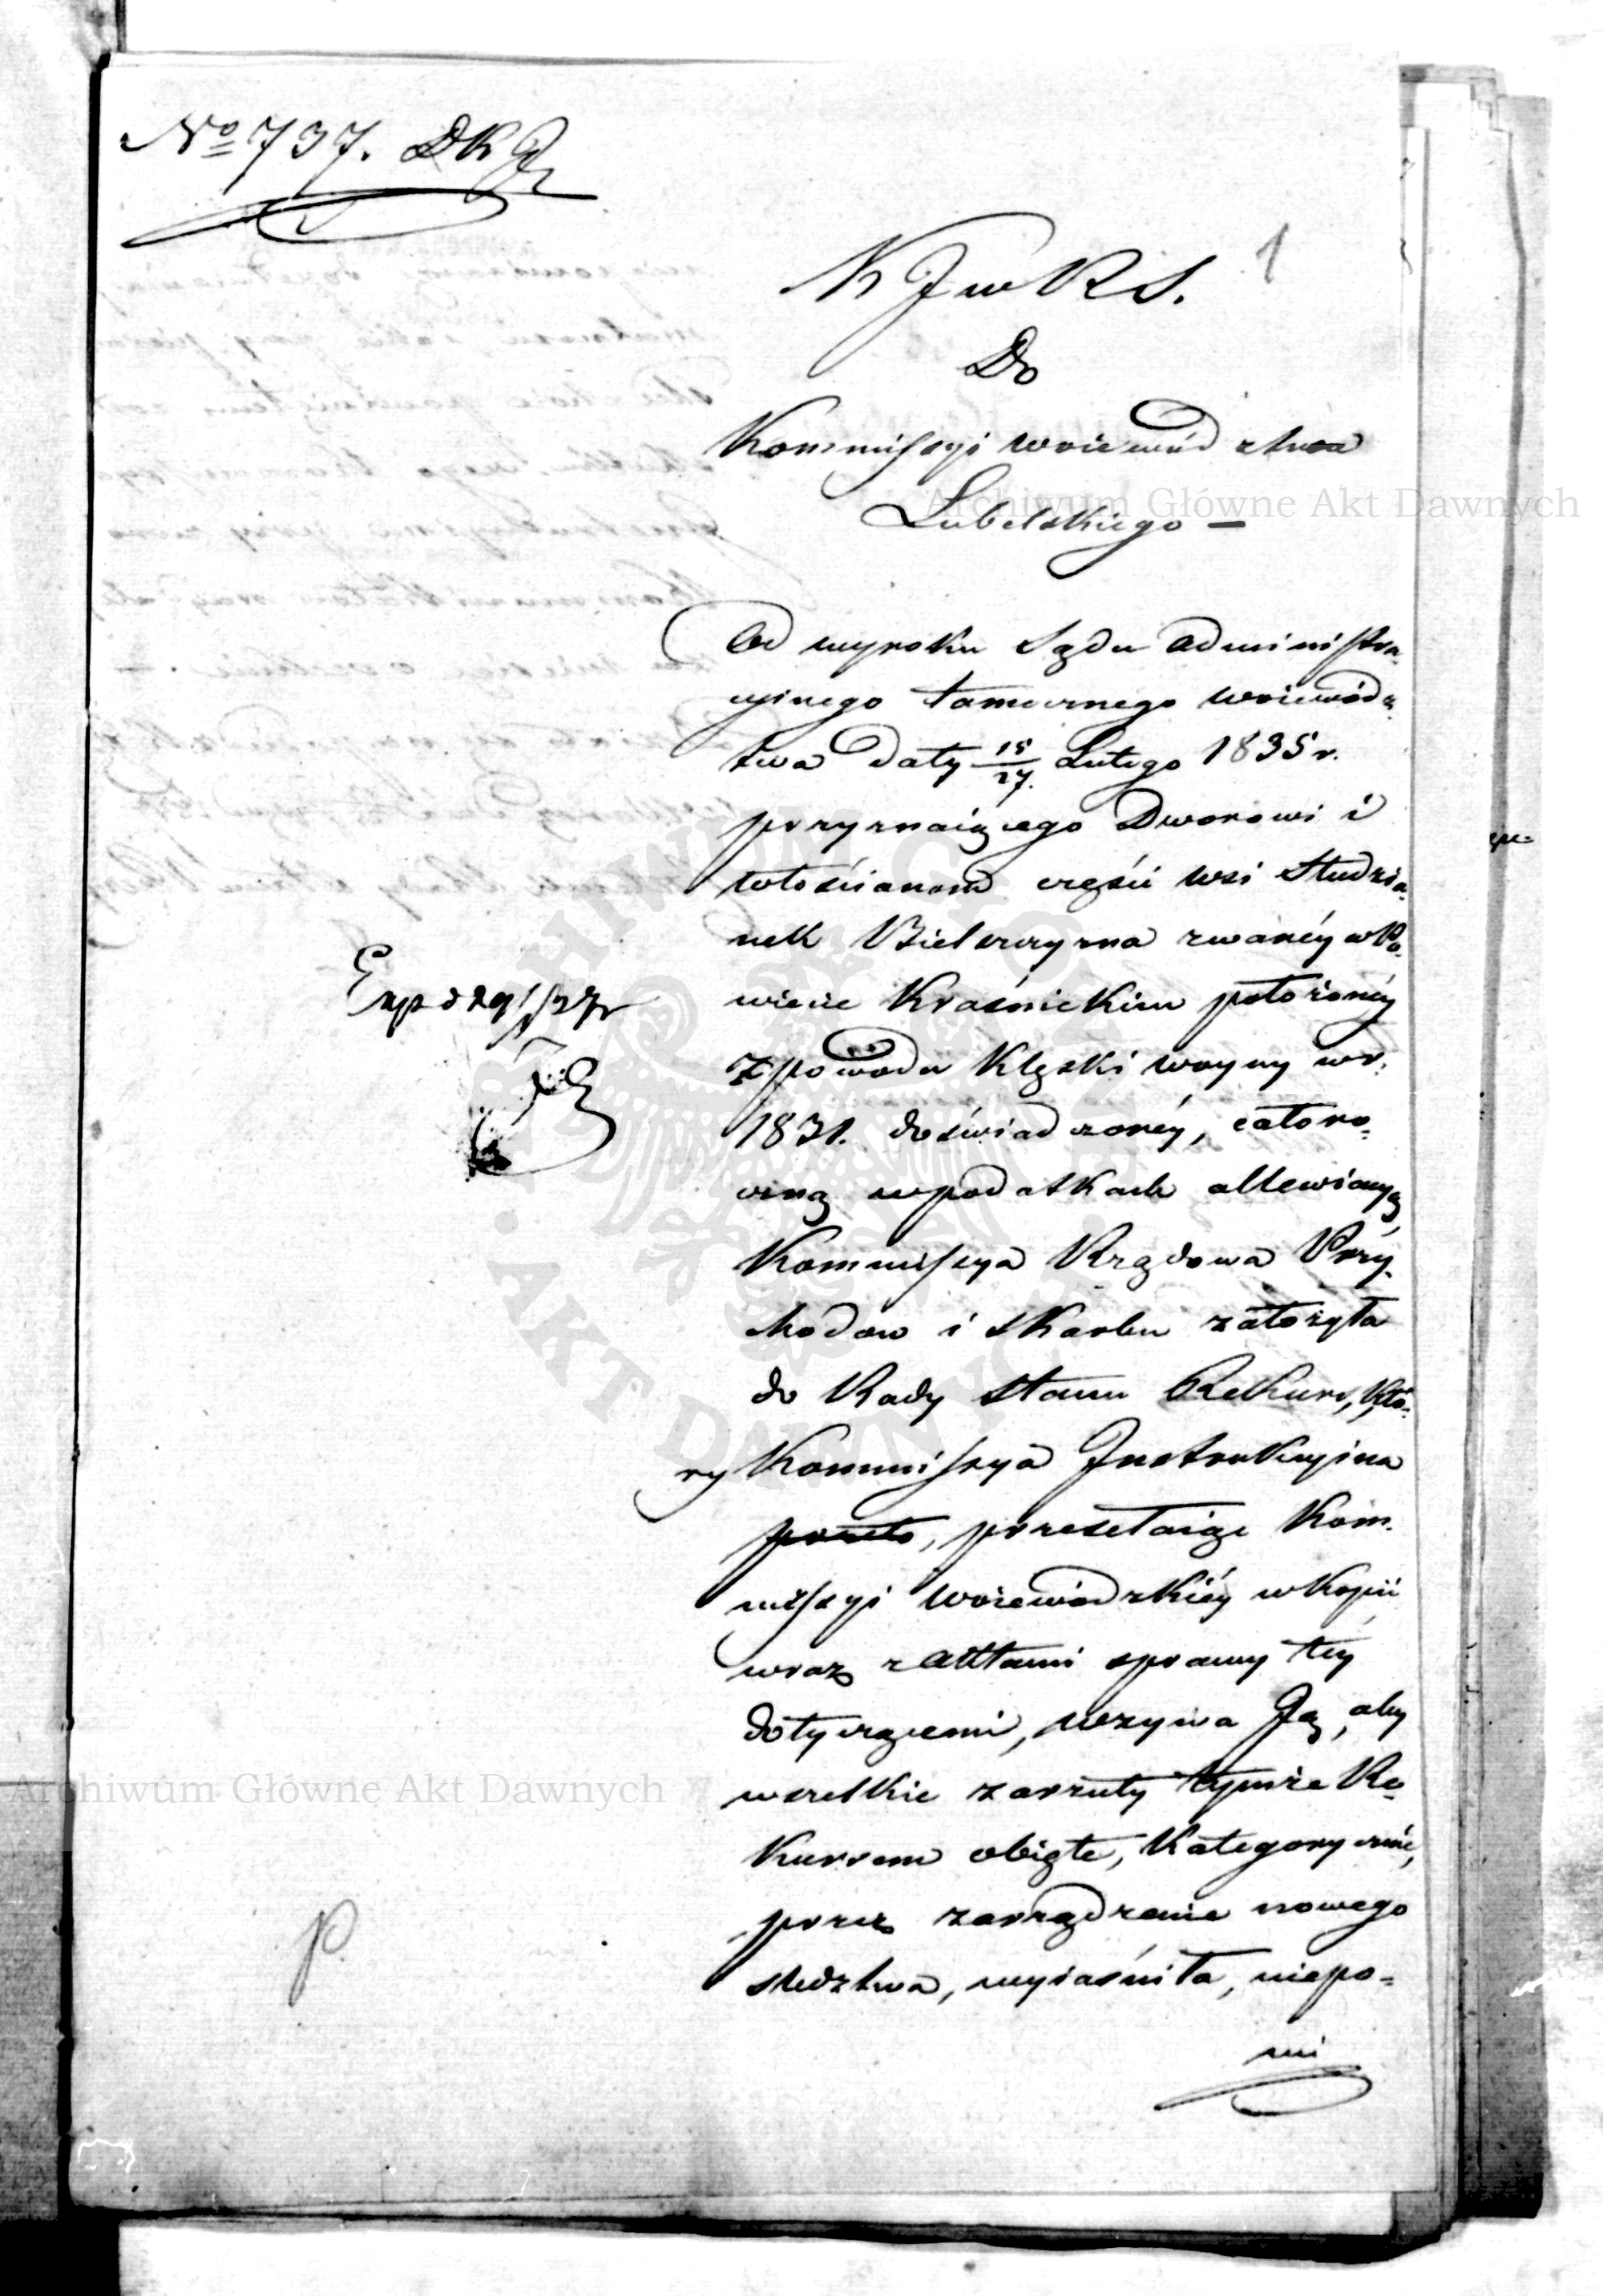 No 737. DK
1
K J w R S.
Do
Kommissyi woiewództwa
Lubelskiego —
Od wyroku Sądu administra-
cyinego tamecznego woiewódz-
twa daty 15/27. Lutego 1835 r.
przyznaiącego Dworowi i
włościanom części wsi Studzia-
nek Bielszczyzna zwanéy w Po-
wiecie Kraśnickim położonéy
z powodu klęski woyny w r.
1831. doświadczonéy, całoro-
czną w podatkach allewiacyą
Kommissya Rządowa Przy-
chodow i Skarbu założyła
do Rady Stanu Rekurs, któ-
ry Kommissya Instrukcyina
przesełaiąc Kom-
missyi woiewódzkiéy w kopii
wraz z aktami sprawy téy
dotyczącemi, wzywa Ją, aby
wszelkie zarzuty tymże Re-
kursem obięte, kategorycznie,
przez zarządzenie nowego
śledztwa, wyiaśniła, niepo-
mi
p.
Archiwum Główne Akt Dawnych
Archiwum Główne Akt Dawnych
ARCHIWUM GŁÓWNE AKT DAWNYCH